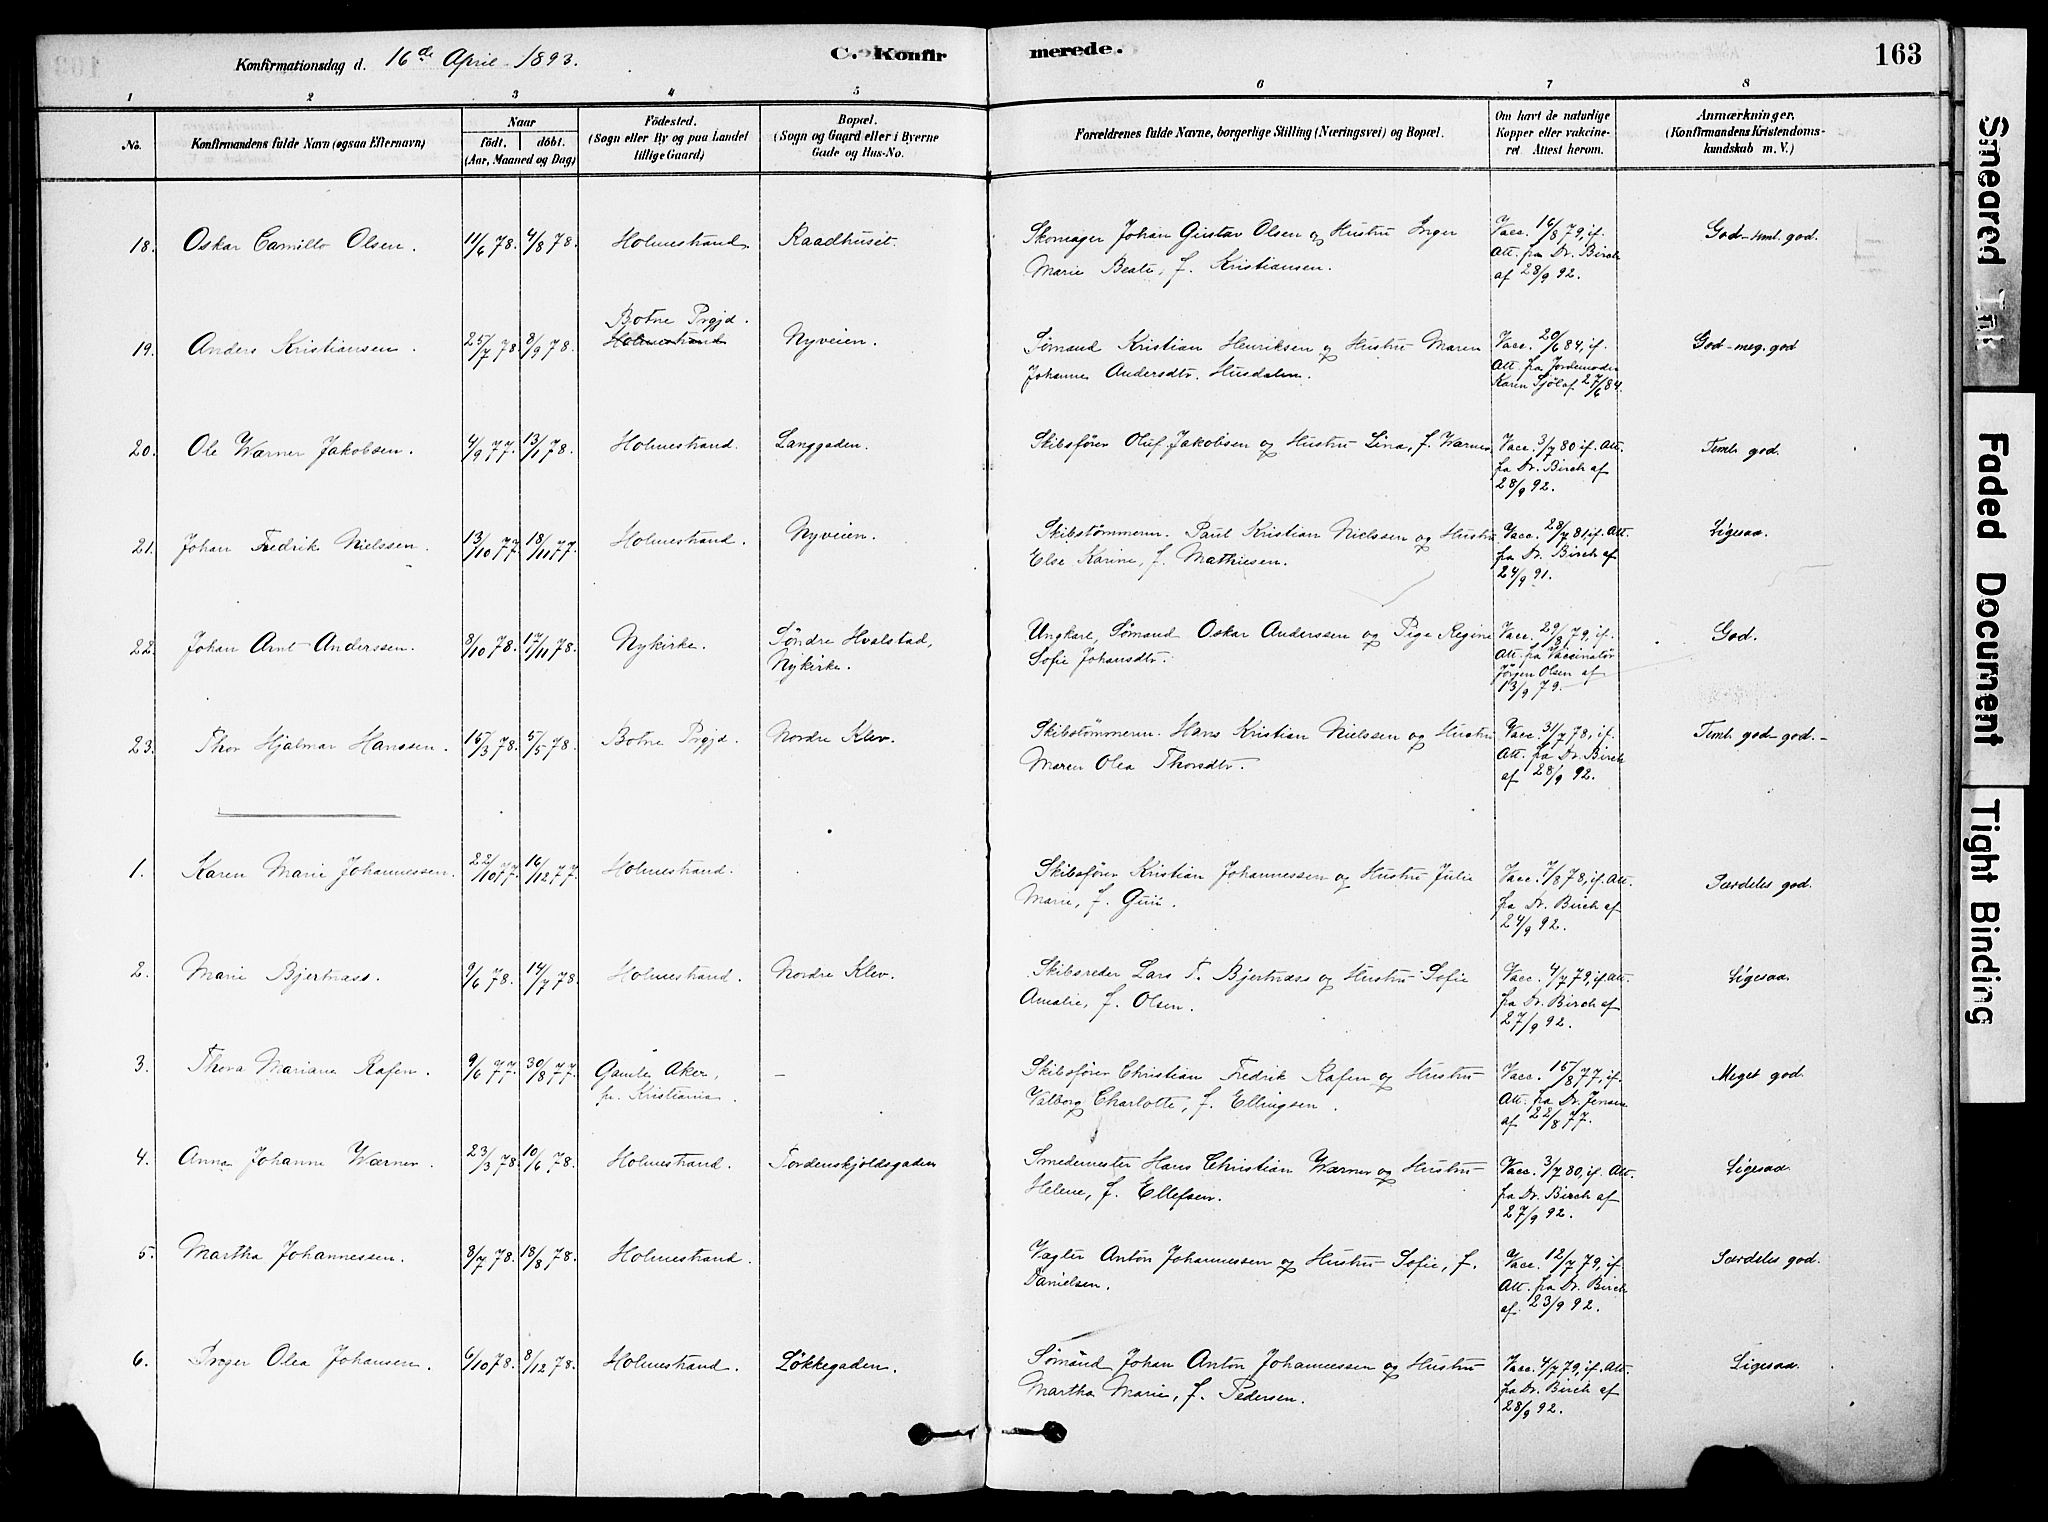 Konfirmationsdag d. 16de April 1893. C. Konfirmerede. 163
1 2 3 4 5 6 7 8
No. Konfirmandens fulde Navn (ogsaa Efternavn) Naar født. døbt. (Aar, Maaned og Dag) Fødested. (Sogn eller By og paa Landet tillige Gaard) Bopæl. (Sogn og Gaard eller i Byerne Gade og Hus-No. Forældrenes fulde Navne, borgerlige Stilling (Næringsvei) og Bopæl. Om havt de naturlige Kopper eller vakcineret Attest herom. Anmærkninger. (Konfirmandens Kristendomskundskab m. V.)
18. Oskar Camillo Olsen. 11/6 78. 4/8 78. Holmestrand. Raadhuset. Skomager Johan Gustav Olsen og Hustru Inger Vacc. 16/8 79, if. God - teml. god.
Marie Beate, f. Kristiansen. Att. fra Dr. Birch
af 28/9 92.
Botne Prgjd.
19. Anders Kristiansen. 25/7 78. 8/9 78. Holmestrand Nyveien. Sømand Kristian Henriksen og Hustru Maren Vacc. 20/6 84, if. God - meg. god
Johanne Andersdtr. Husdalen. Att. fra Jordemoder
Karen Sjöl af 27/6 84.
20. Ole Wærner Jakobsen. 4/9 77. 13/1 78. Holmestrand. Langgaden. Skibsfører Oluf Jakobsen og Hustru Lina, f. Wærner. Vacc. 3/7 80 if. Att. Teml. god.
fra Dr. Birch af
28/9 92.
21. Johan Fredrik Nielssen. 13/10 77. 18/11 77. Holmestrand. Nyveien. Skibstømmerm. Paul Kristian Nielssen og Hustru Vacc. 28/7 81, if. Att. Ligesaa.
Else Karine, f. Mathiesen. fra Dr. Birch af
24/9 91.
22. Johan Arnt Anderssen. 8/10 78. 17/11 78. Nykirke. Søndre Hvalstad, Ungkarl, Sømand Oskar Anderssen og Pige Regine Vacc. 29/8 79, if. God.
Nykirke. Sofie Johansdtr. Att. fra Vaccinatør
Jørgen Olsen af
13/9 79.
23. Thor Hjalmar Hanssen. 15/3 78. 5/5 78. Botne Prgjd. Nordre Klev. Skibstømmerm. Hans Kristian Nielssen og Hustru Vacc. 31/7 78, if. Teml. god - god. -
Maren Olea Thorsdtr. Att. fra Dr. Birch
af 28/9 92.
1. Karen Marie Johannessen. 22/10 77. 16/12 77. Holmestrand. Skibsfører Kristian Johannessen og Hustru Julie Vacc. 7/8 78, if. Att. Særdeles god.
Marie, f. fra Dr. Birch af
24/9 92.
2. Marie Bjertnæss. 9/6 78. 14/7 78. Holmestrand. Nordre Klev. Skibsreder Lars T. Bjertnæss og Hustru Sofie Vacc. 4/7 79, if. Att. Ligesaa.
Amalie, f. Olsen. fra Dr. Birch af
27/9 92.
3. Thora Mariane Rafen. 9/6 77. 30/8 77. Gamle Aker, - Skibsfører Christian Fredrik Rafen og Hustru Vacc. 15/8 77, if. Meget god.
pr. Kristiania. Valborg Charlotte, f. Ellingsen. Att. fra Dr. Jensen
af 22/8 77.
4. Anna Johanne Wærner. 23/3 78. 10/6 78. Holmestrand. Tordenskjoldsgaden Smedemester Hans Christian Wærner og Hustru Vacc. 3/7 80, if. Att. Ligesaa.
Helene, f. Ellefsen. fra Dr. Birch af
27/9 92.
5. Martha Johannessen. 8/7 78. 18/8 78. Holmestrand. Vægter Anton Johannessen og Hustru Sofie, f. Vacc. 12/7 79, if Særdeles god.
Danielsen. Att. fra Dr. Birch
af 23/9 92.
6. Inger Olea Johansen. 6/10 78. 8/12 78. Holmestrand. Løkkegaden. Sømand Johan Anton Johannessen og Hustru Vacc. 4/7 79, if. Att. Ligesaa.
Martha Marie, f. Pedersen. fra Dr. Birch af
28/9 92.
Smeared Ink
Faded Document
Tight Binding